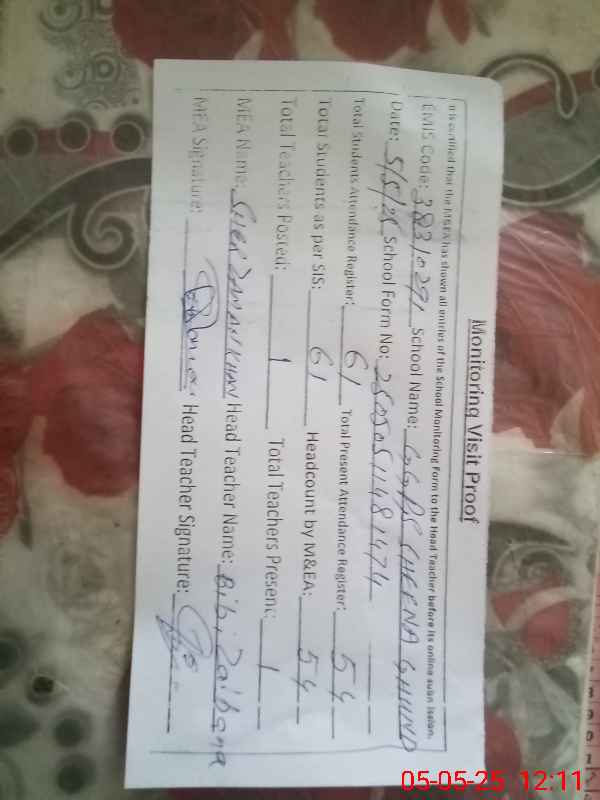 Monitoring Visit Proof
It is certified that the M&EA has shown all entries of the School Monitoring Form to the Head Teacher before its online submission.
EMIS Code: 38310291 School Name: GGPS CHEENA GHUND
Date: 5/5/25 School Form No: 25050511481474
Total Students Attendance Register: 61 Total Present Attendance Register: 54
Total Students as per SIS: 61 Headcount by M&EA: 54
Total Teachers Posted: 1 Total Teachers Present: 1
MEA Name: SHER ZAMAN KHAN Head Teacher Name: Bibi Zaibana
MEA Signature: Head Teacher Signature:
05-05-25 12:11